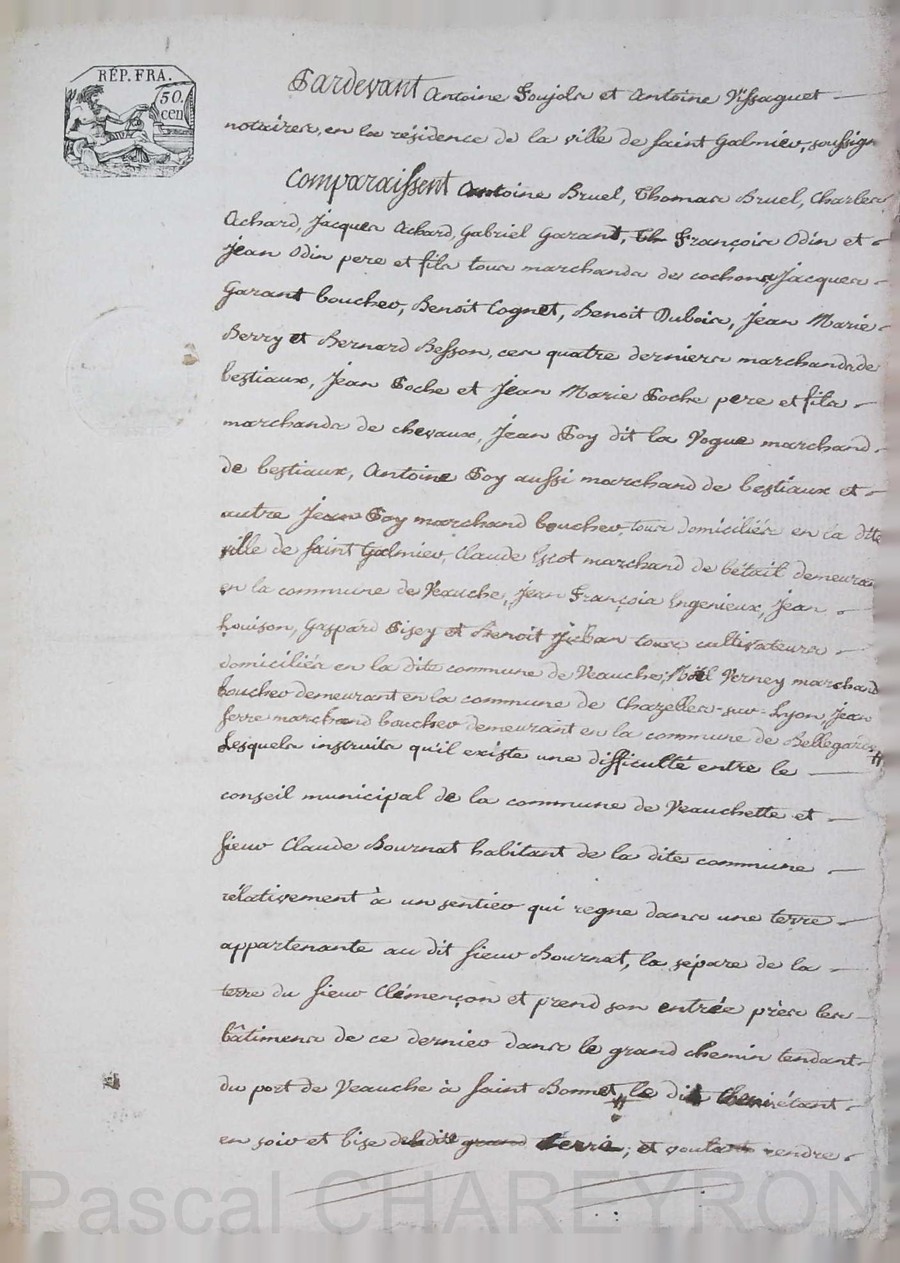 RÉP. FRA.
50.
cen
Pardevant Antoine Poujola et Antoine Vissaguet
notaires, en la résidence de la ville de saint Galmier, soussign
Comparaissent Antoine Bruel, Thomas Bruel, Charles
Achard, Jacques Achard, Gabriel Garant, François Odin et
Jean Odin pere et fils tous marchands de cochons, Jacques
Garant boucher, Benoit Cognet, Benoit Dubois, Jean Marie
Berry et Bernard Besson, ces quatre derniers marchands de
bestiaux, Jean Poche et Jean Marie Poche pere et fils
marchands de chevaux, Jean Poy dit la Vogue marchand
de bestiaux, Antoine Poy aussi marchand de bestiaux et
autre Jean Poy marchand boucher, tous domiciliés en la dite
ville de saint Galmier, Claude Escot marchand de bétail demeuran
en la commune de Veauche, Jean François Engenieux, Jean
Louison, Gaspard Pisey et Benoit tous cultivateurs
domiciliés en la dite commune de Veauche, Noël Verney marchand
boucher demeurant en la commune de Chazelles-sur-Lyon, Jean
ferre marchand boucher demeurant en la commune de Bellegarde
Lesquels instruits qu'il existe une difficulté entre le
conseil municipal de la commune de Veauchette et
sieur Claude Bournat habitant de la dite commune
rélativement à un sentier qui regne dans une terre
appartenante au dit sieur Bournat, la sépare de la
terre du sieur Clémençon et prend son entrée près les
bâtimens de ce dernier dans le grand chemin tendant
du port de Veauche à saint Bonnet, le dit étant
en soir et bise de la dite grand terre, et voulant rendre
Pascal CHAREYRON